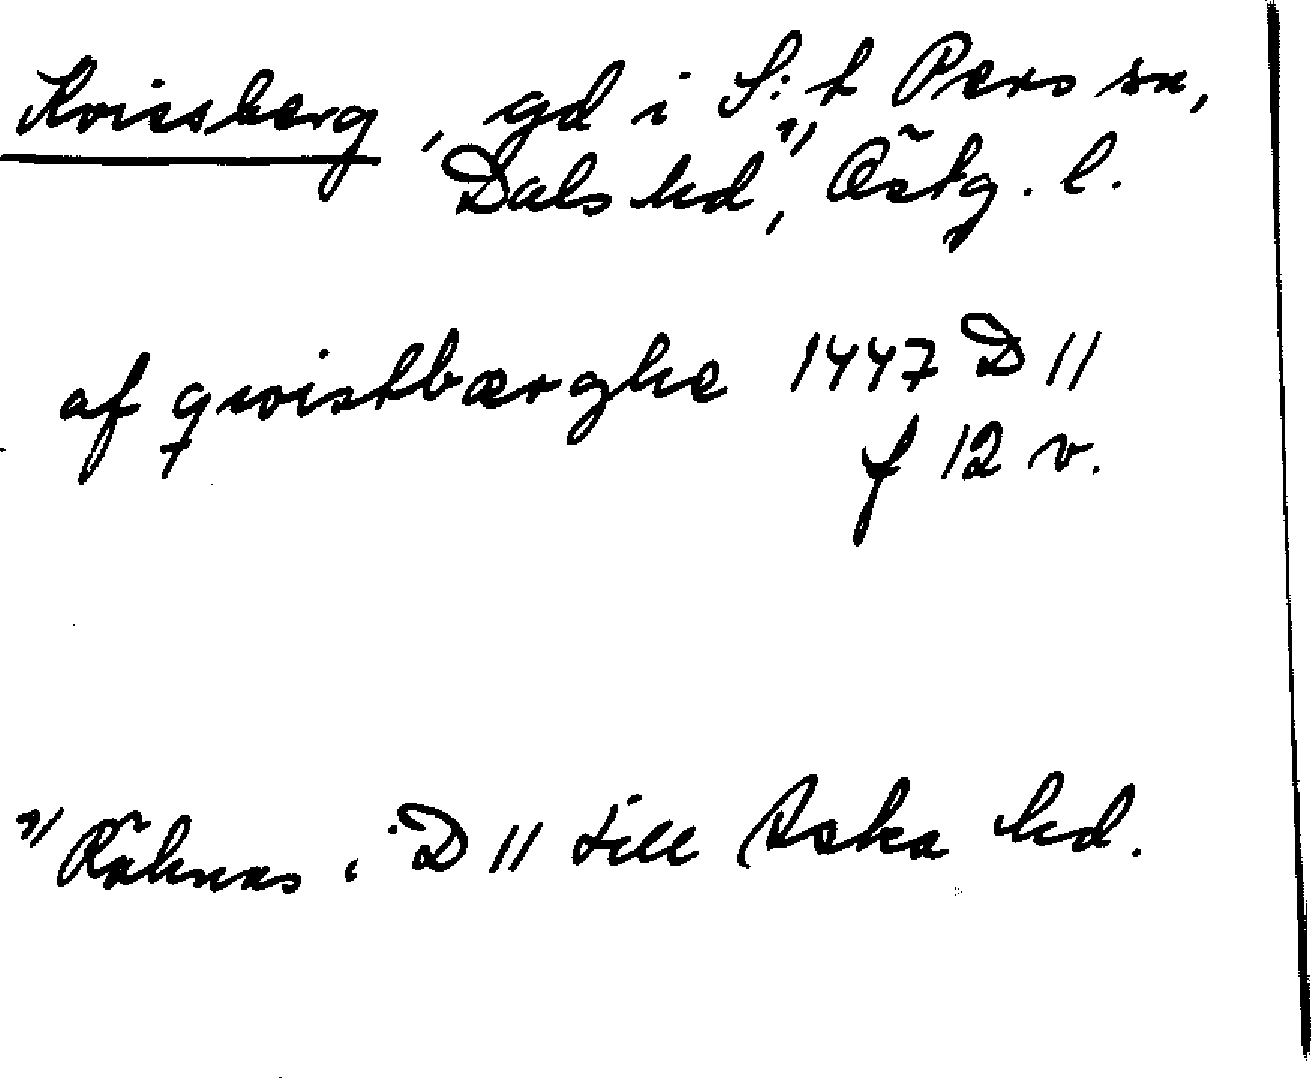 Kvissberg, gd i S:t Pers sn,
Dals hd,¹⁾ Östg. l.
af qwistbærghe 1447 D 11
f 12 v.
¹⁾ Räknas i D 11 till Aska hd.